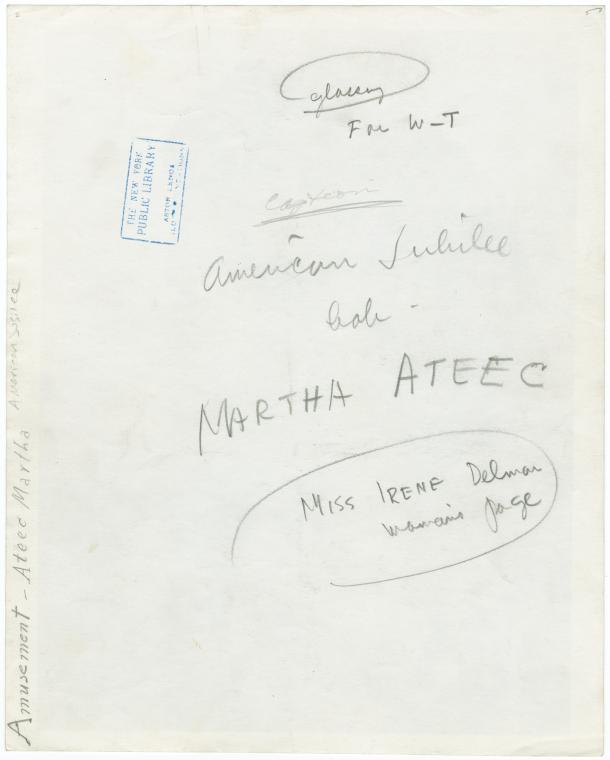 glossy
For W-T
THE NEW YORK
PUBLIC LIBRARY
ASTOR LENOX
caption
American Jubilee
bob -
MARTHA ATEEC
MISS IRENE Delmar
woman's page
Amusement - Ateec Martha American Jubilee